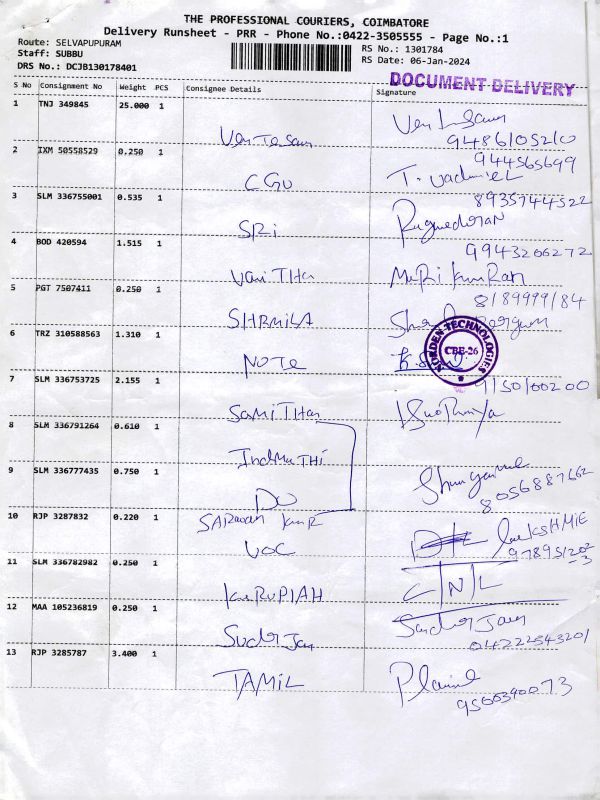 THE PROFESSIONAL COURIERS, COIMBATORE
Delivery Runsheet - PRR - Phone No.:0422-3505555 - Page No.:1
Route: SELVAPUPURAM
RS No.: 1301784
Staff: SUBBU
RS Date: 06-Jan-2024
DRS No.: DCJB130178401
DOCUMENT DELIVERY
S No Consignment No Weight PCS Consignee Details Signature
1 TNJ 349845 25.000 1
9486105210
2 IXM 50558529 0.250 1
944565699
CGU
3 SLM 336755001 0.535 1
8935744522
SRi
4 BOD 420594 1.515 1
9943206272
VaniTHa MuRikumRan
5 PGT 7507411 0.250 1
8189999184
SHRMILA
NORDEN TECHNOLOGIES
CBE-26
6 TRZ 310588563 1.310 1
NOTE
7 SLM 336753725 2.155 1
9150100200
SamiTHa
8 SLM 336791264 0.610 1
IndmaTHi
9 SLM 336777435 0.750 1
DO
8056887662
10 RJP 3287832 0.220 1
VOC
LakshMIE
11 SLM 336782982 0.250 1
C/N/L
KaRUPIAH
12 MAA 105236819 0.250 1
04222543201
13 RJP 3285787 3.400 1
TAMIL
9500390073